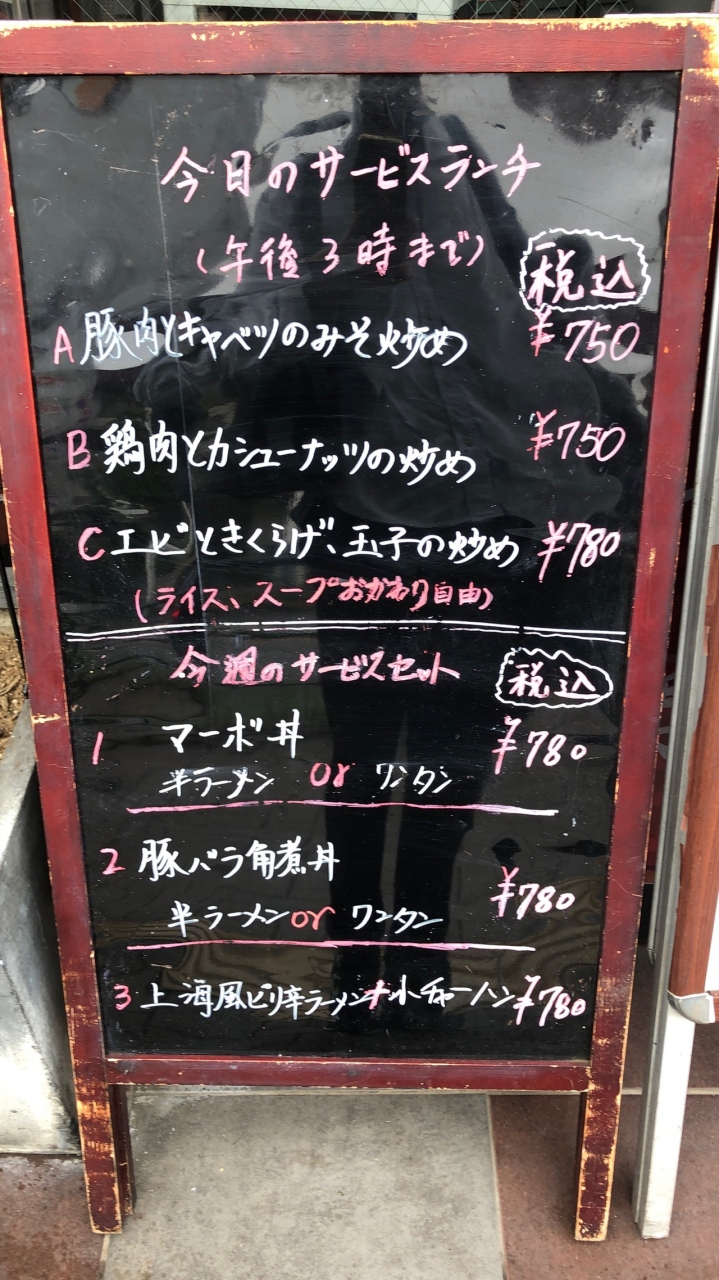 今日のサービスランチ
(午後3時まで)
税込
A 豚肉とキャベツのみそ炒め ¥750
B 鶏肉とカシューナッツの炒め ¥750
C エビときくらげ、玉子の炒め ¥780
(ライス、スープおかわり自由)
今週のサービスセット 税込
1 マーボ丼 ¥780
半ラーメン or ワンタン
2 豚バラ角煮丼 ¥780
半ラーメン or ワンタン
3 上海風ピリ辛ラーメン+小チャーハン ¥780